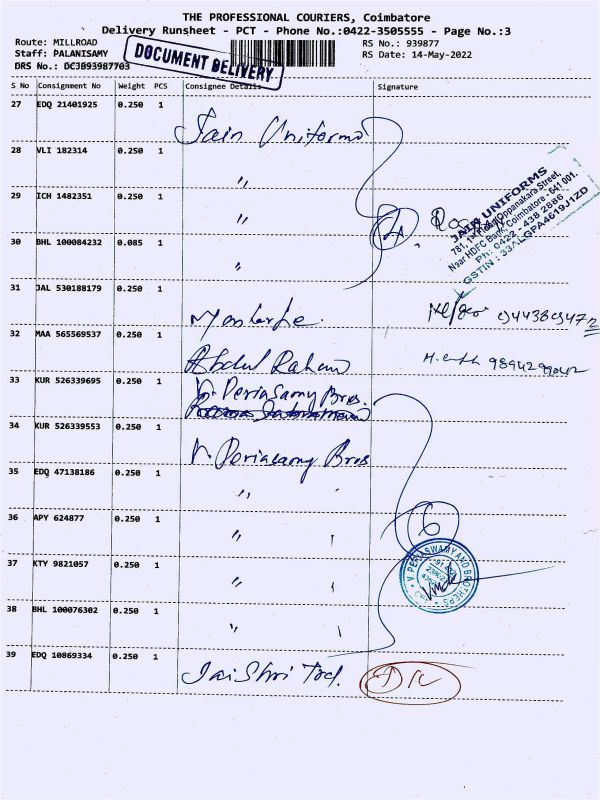 THE PROFESSIONAL COURIERS, Coimbatore
Delivery Runsheet - PCT - Phone No.:0422-3505555 - Page No.:3
Route: MILLROAD
Staff: PALANISAMY
DRS No.: DCJB93987703
DOCUMENT DELIVERY
RS No.: 939877
RS Date: 14-May-2022
S No Consignment No Weight PCS Consignee Details Signature
27 EDQ 21401925 0.250 1 Jain Uniforms
28 VLI 182314 0.250 1 "
29 ICH 1482351 0.250 1 "
30 BHL 100084232 0.085 1 "
4
JAIN UNIFORMS
781, 1st Floor, Oppanakara Street,
Near HDFC Bank, Coimbatore - 641 001.
Ph: 0422 - 438 2886
GSTIN : 33ALGPA4619J1ZD
31 JAL 530188179 0.250 1
32 MAA 565569537 0.250 1 Abdul Raham
33 KUR 526339695 0.250 1 V. Periasamy Bros.
34 KUR 526339553 0.250 1 V. Periasamy Bros
35 EDQ 47138186 0.250 1 " "
36 APY 624877 0.250 1 " "
6
37 KTY 9821057 0.250 1 " "
V. PERIASWAMY AND BROTHERS
38 BHL 100076302 0.250 1 " "
39 EDQ 10869334 0.250 1 Jai Shri Trd.